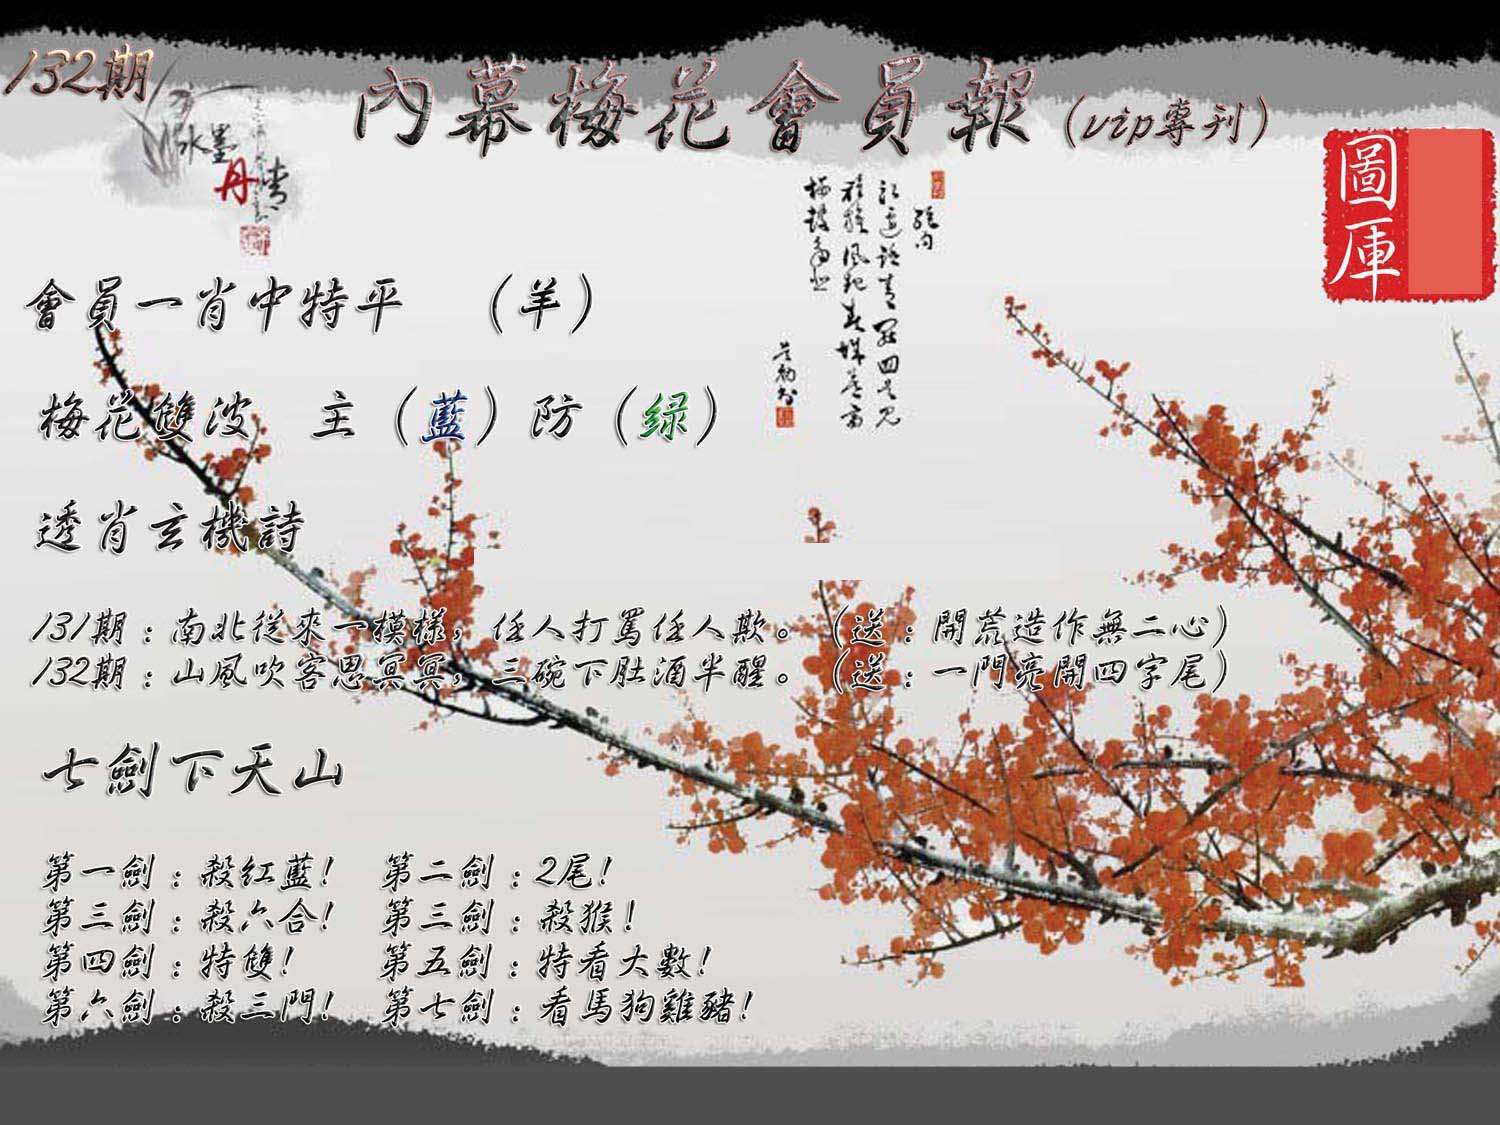 132期
內幕梅花會員報(vip專刊)
水墨
丹青
圖庫
會員一肖中特平 (羊)
梅花雙波 主(藍)防(绿)
透肖玄機詩
131期:南北從來一模樣,任人打罵任人欺。(送:開荒造作無二心)
132期:山風吹客思冥冥,三碗下肚酒半醒。(送:一門亮開四字尾)
七劍下天山
第一劍:殺紅藍! 第二劍:2尾!
第三劍:殺六合! 第三劍:殺猴!
第四劍:特雙! 第五劍:特看大數!
第六劍:殺三門! 第七劍:看馬狗雞豬!